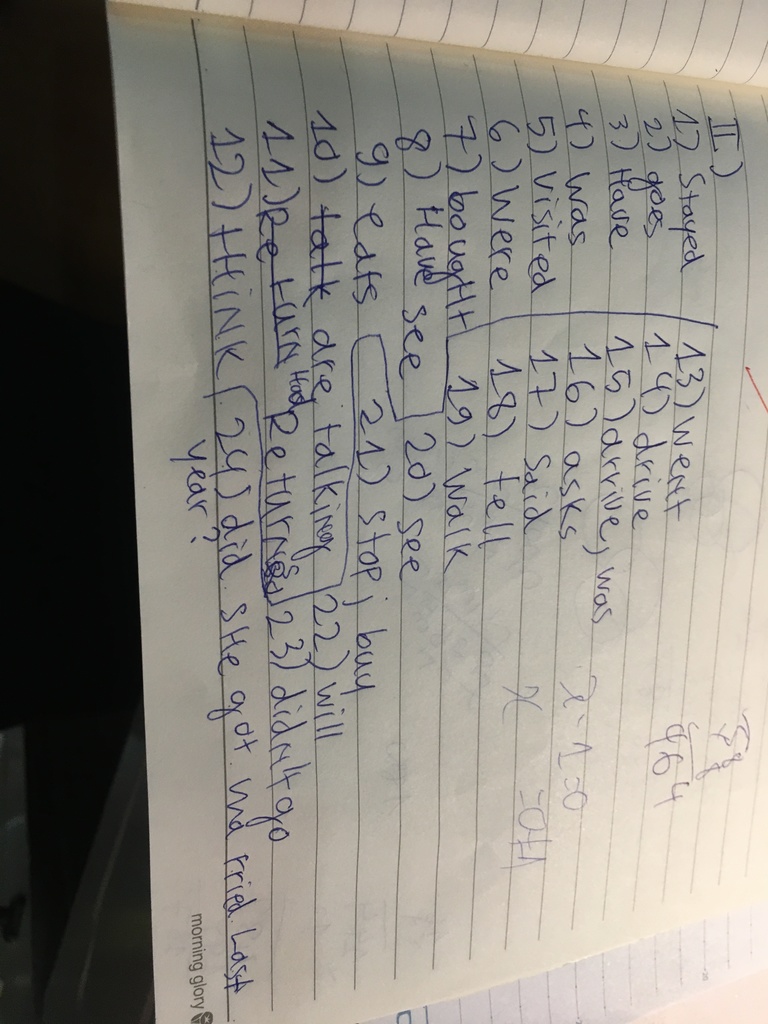 II)
1) Stayed 13) went
2) goes 14) drive
3) Have 15) drrive, was
4) was 16) asks x-1=0
5) visited 17) said x =0+1
6) were 18) tell
7) bought 19) walk
8) Have see 20) see
9) eats 21) stop; buy
10) talk are, talking 22) will
11) Return Had Returned 23) didn't go
12) tHiNK 24) did sHe got Last
year?
morning glory